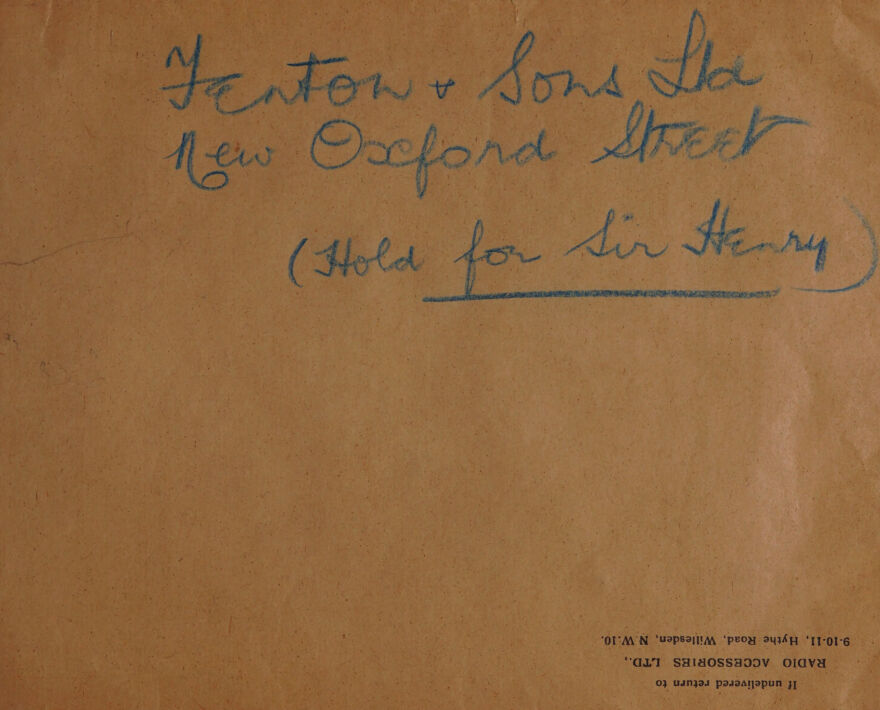 Fenton + Sons Ltd
New Oxford Street
(Hold for Sir Henry)
If undelivered return to
RADIO ACCESSORIES LTD.,
9-10-11, Hythe Road, Willesden, N.W.10.